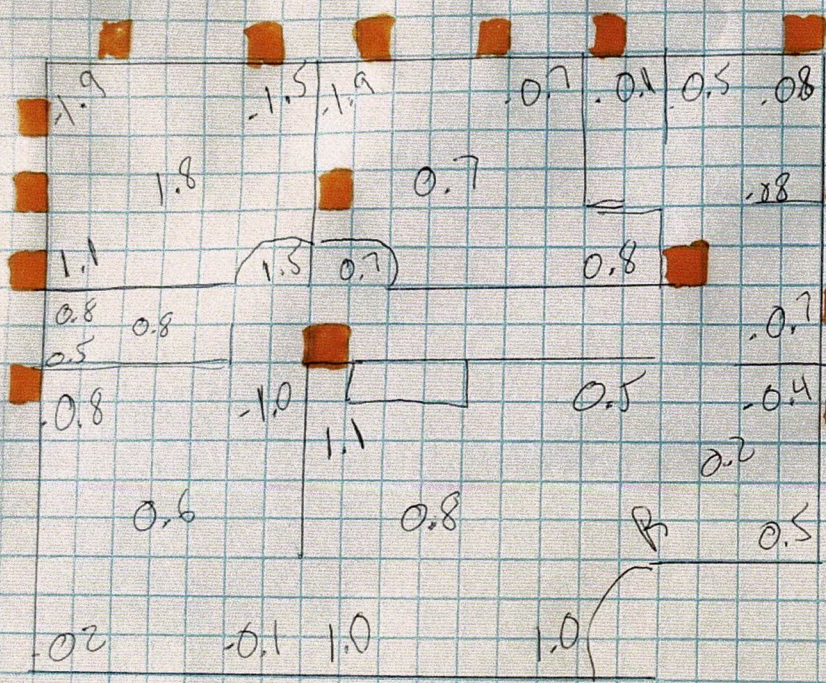 -1.9 -1.5 -1.9 -0.7 -0.1 0.5 -0.8
1.8 0.7
1.1 1.5 0.7 0.8
0.8 0.8
-0.7
0.5
-0.8 -1.0 0.5 -0.4
1.1
0.2
0.6 0.8 0.5
-02 -0.1 1.0 1.0